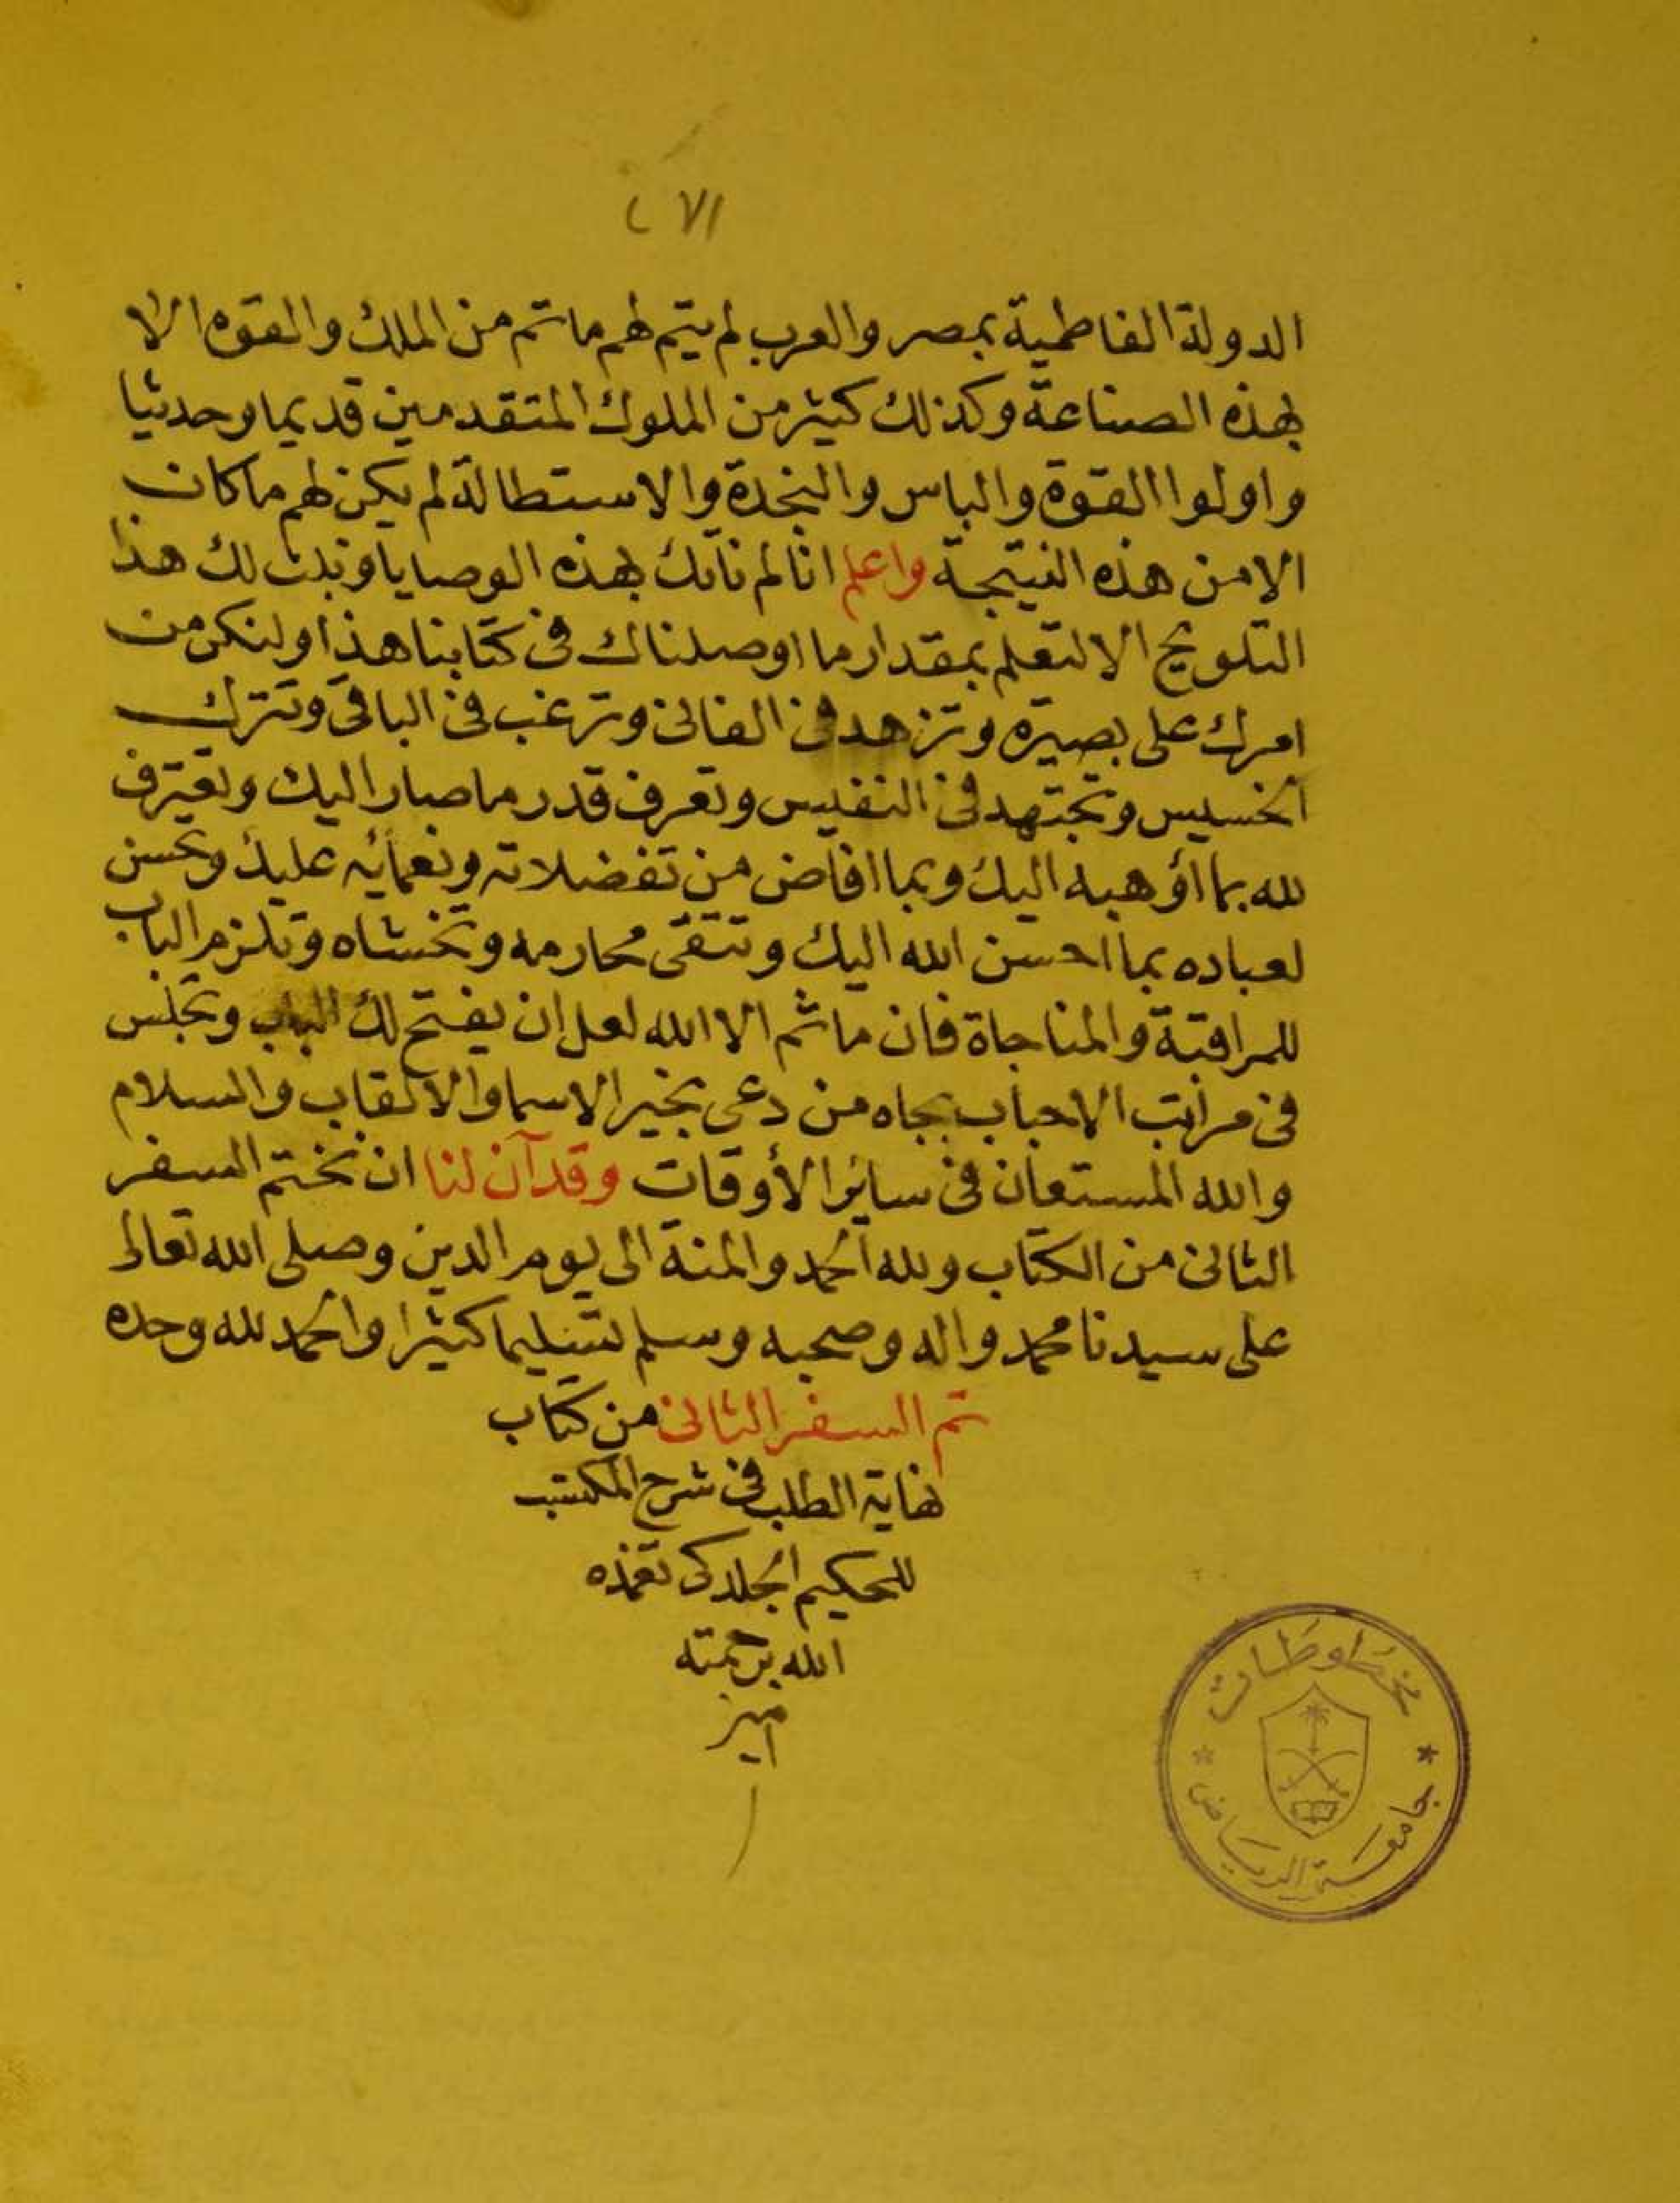 ٢٧١
الدولة الفاطمية بمصر والعرب لم يتم لهم ما تم من الملك والقوه الا
بهذه الصناعة وكذلك كثير من الملوك المتقدمين قديما وحديثا
واولوا القوة والباس والنجدة والاستطالة لم يكن لهم ما كان
الا من هذه النتيجة واعلم انا لم ناتك بهذه الوصايا ونبث لك هذا
التلويح الا لتعلم بمقدار ما اوصلناك فى كتابنا هذا ولتكن من
امرك على بصيرة وتزهد فى الفانى وترغب فى الباقى وتترك
الخسيس وتجتهد فى النفيس وتعرف قدر ما صار اليك وتعترف
لله بما اوهبه اليك وبما افاض من تفضلاته ونعمائه عليك وتحسن
لعباده بما احسن الله اليك وتتقى محارمه وتخشاه وتلزم الباب
للمراقبة والمناجاة فان ما ثم الا الله لعل ان يفتح لك الباب وتجلس
فى مراتب الاحباب بجاه من دعى بخير الاسما والالقاب والسلام
والله المستعان فى سائر الأوقات وقد آن لنا ان نختم السفر
الثانى من الكتاب ولله الحمد والمنة الى يوم الدين وصلى الله تعالى
على سيدنا محمد واله وصحبه وسلم تسليما كثيرا والحمد لله وحده
تم السفر الثانى من كتاب
نهاية الطلب فى شرح المكتسب
للحكيم الجلدكى تغمده
الله برحمته
امين
مخطوطات
جامعة الرياض